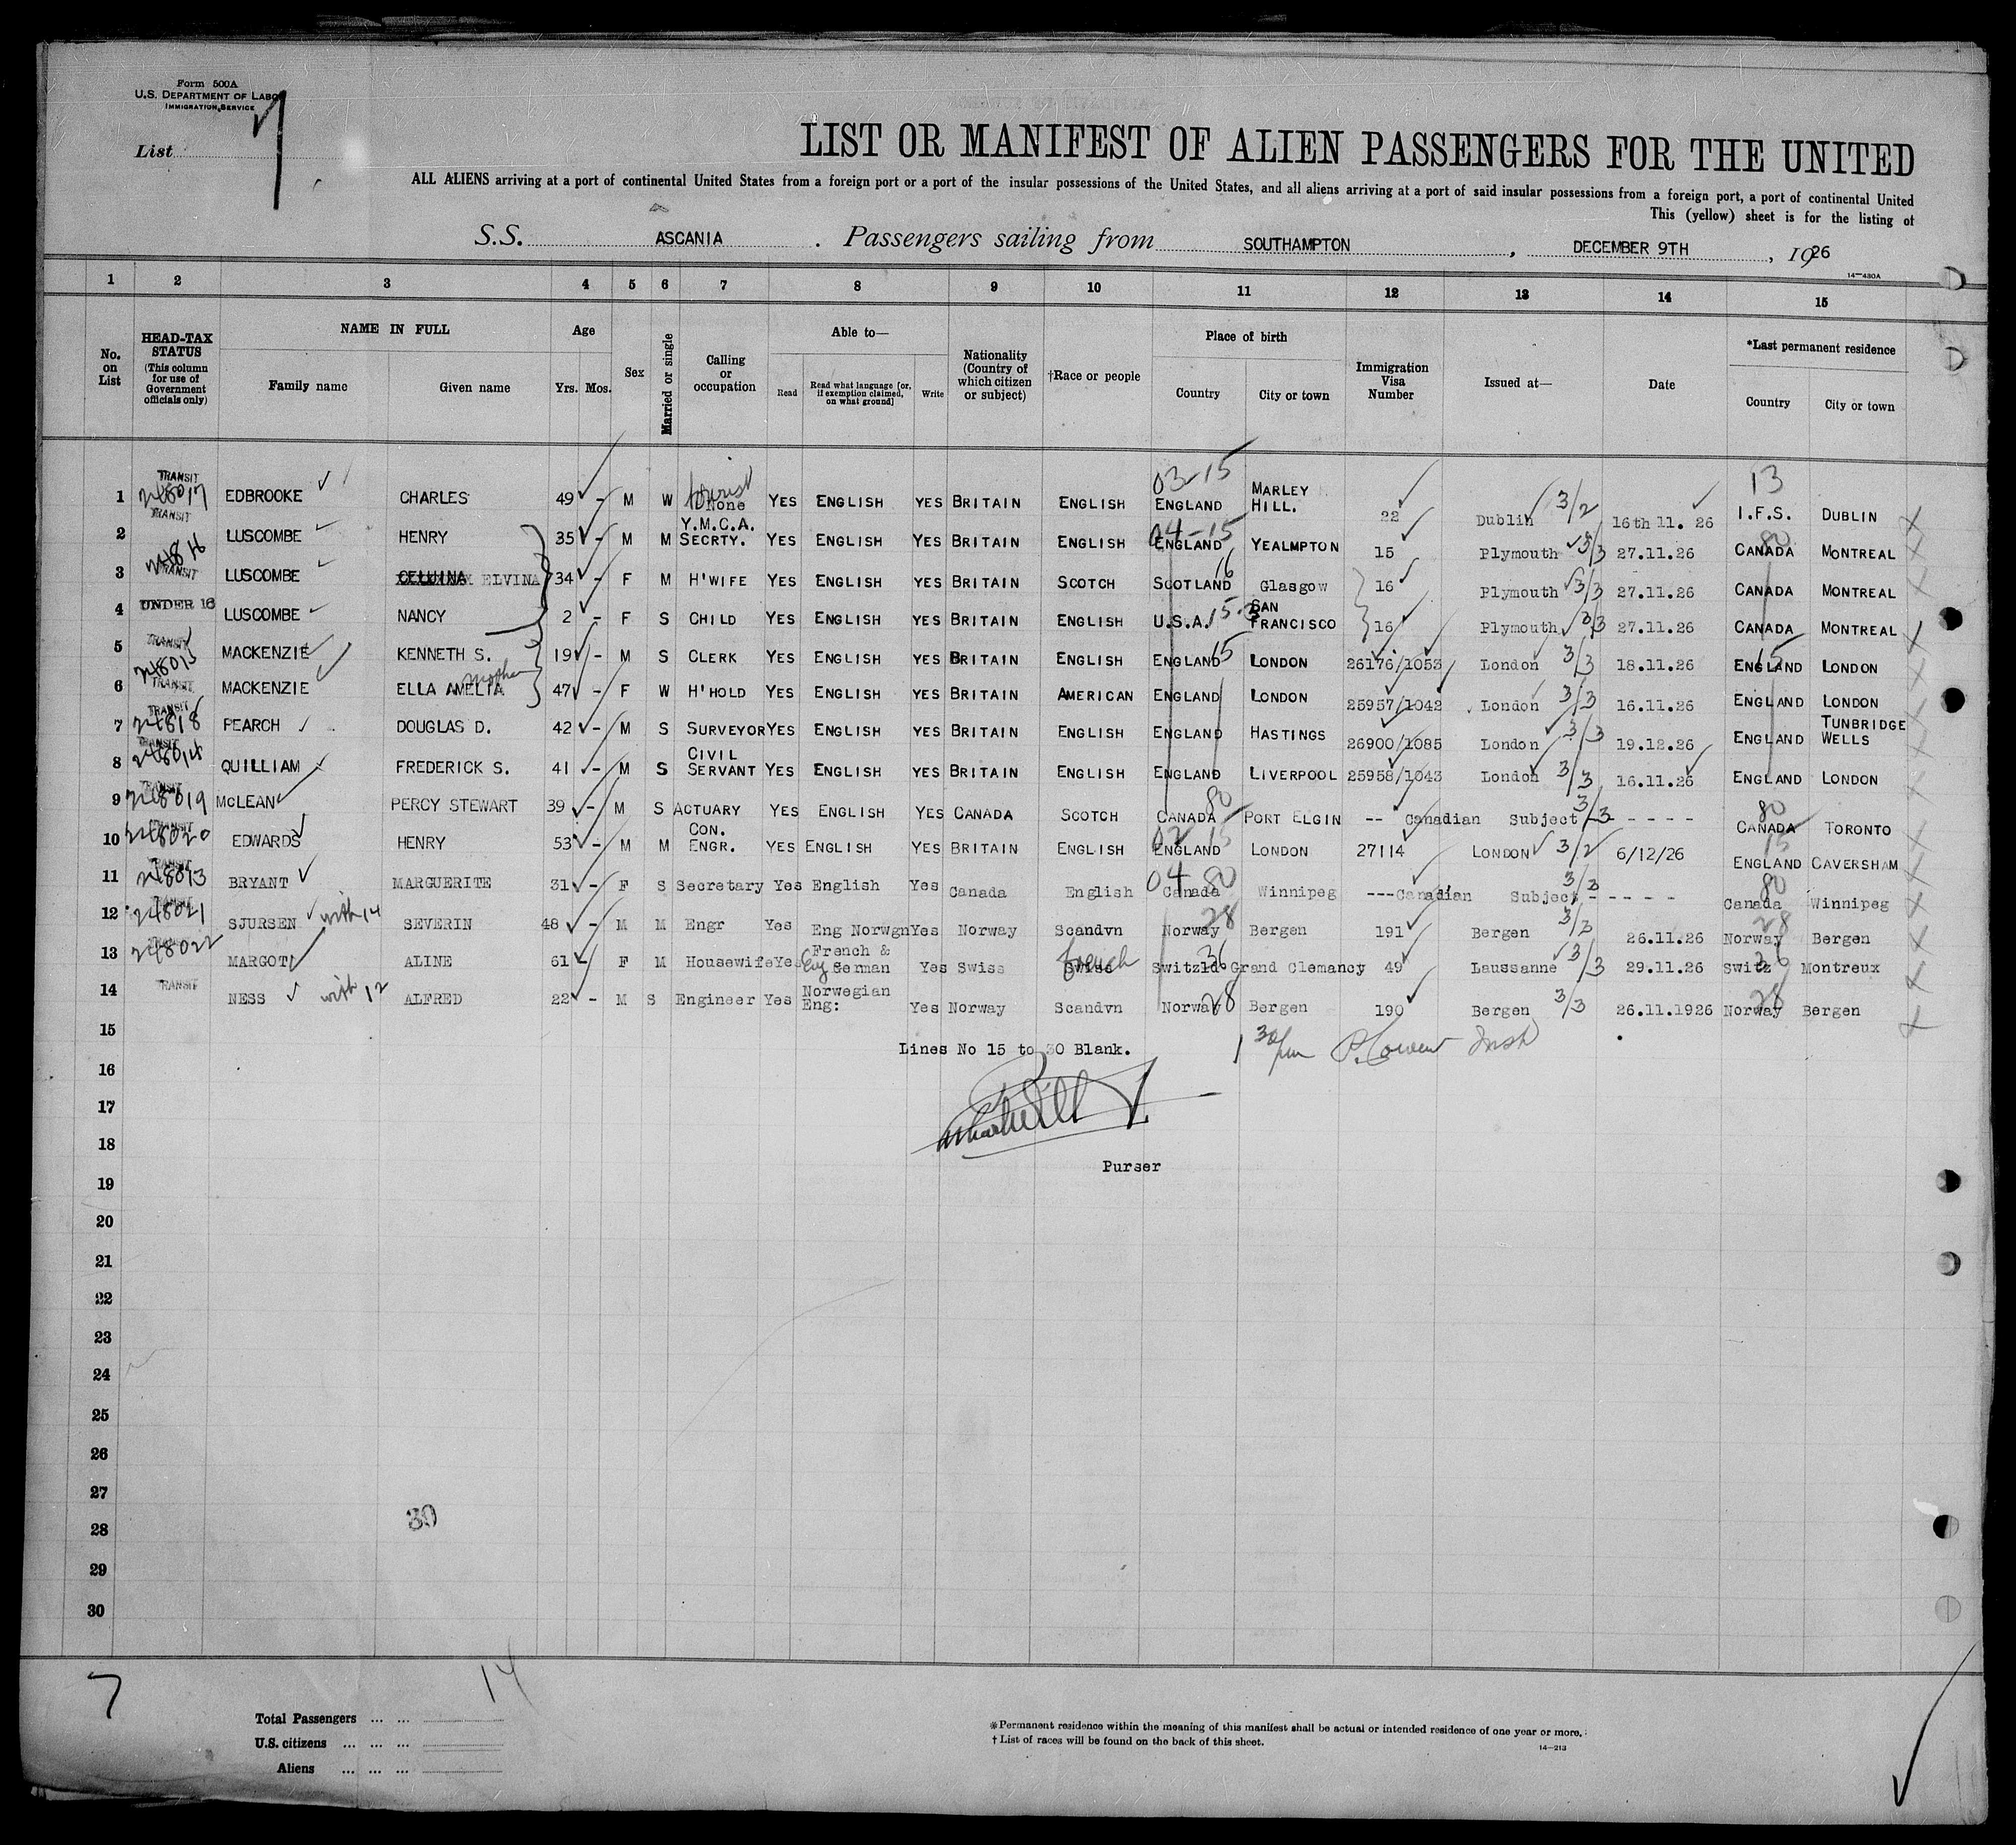 Form 500A
U.S. DEPARTMENT OF LABOR
IMMIGRATION SERVICE
List 7
LIST OR MANIFEST OF ALIEN PASSENGERS FOR THE UNITED
ALL ALIENS arriving at a port of continental United States from a foreign port or a port of the insular possessions of the United States, and all aliens arriving at a port of said insular possessions from a foreign port, a port of continental United
This (yellow) sheet is for the listing of
S.S. ASCANIA . Passengers sailing from SOUTHAMPTON , DECEMBER 9TH , 1926
14-480A
1 2 3 4 5 6 7 8 9 10 11 12 13 14 15
No. on List
HEAD-TAX STATUS (This column for use of Government officials only)
NAME IN FULL Family name Given name
Age Yrs. Mos.
Sex
Married or single
Calling or occupation
Able to— Read Read what language [or, if exemption claimed, on what ground] Write
Nationality (Country of which citizen or subject)
†Race or people
Place of birth Country City or town
Immigration Visa Number
Issued at—
Date
*Last permanent residence Country City or town
1 TRANSIT 248017 EDBROOKE CHARLES 49 - M W tourist None YES ENGLISH YES BRITAIN ENGLISH 03-15 ENGLAND MARLEY HILL. 22 Dublin 3/2 16th 11. 26 13 I.F.S. DUBLIN
2 TRANSIT LUSCOMBE HENRY 35 - M M Y.M.C.A. SECRTY. YES ENGLISH YES BRITAIN ENGLISH 04-15 ENGLAND YEALMPTON 15 Plymouth 3/3 27.11.26 80 CANADA MONTREAL
3 TRANSIT LUSCOMBE ELVINA 34 - F M H'WIFE YES ENGLISH YES BRITAIN SCOTCH 16 SCOTLAND Glasgow 16 Plymouth 3/3 27.11.26 CANADA MONTREAL
4 UNDER 16 LUSCOMBE NANCY 2 - F S CHILD YES ENGLISH YES BRITAIN ENGLISH U.S.A. 15-3 SAN FRANCISCO 16 Plymouth 3/3 27.11.26 CANADA MONTREAL
5 TRANSIT 248015 MACKENZIE KENNETH S. 19 - M S CLERK YES ENGLISH YES BRITAIN ENGLISH ENGLAND 15 LONDON 26176/1053 London 3/3 18.11.26 ENGLAND 15 LONDON
6 TRANSIT MACKENZIE ELLA AMELIA mother 47 - F W H'HOLD YES ENGLISH YES BRITAIN AMERICAN ENGLAND LONDON 25957/1042 London 3/3 16.11.26 ENGLAND LONDON
7 TRANSIT 24818 PEARCH DOUGLAS D. 42 - M S SURVEYOR YES ENGLISH YES BRITAIN ENGLISH ENGLAND HASTINGS 26900/1085 London 3/3 19.12.26 ENGLAND TUNBRIDGE WELLS
8 TRANSIT 248014 QUILLIAM FREDERICK S. 41 - M S CIVIL SERVANT YES ENGLISH YES BRITAIN ENGLISH ENGLAND LIVERPOOL 25958/1043 London 3/3 16.11.26 ENGLAND LONDON
9 TRANSIT 248019 MCLEAN PERCY STEWART 39 - M S ACTUARY YES ENGLISH YES CANADA SCOTCH 80 CANADA PORT ELGIN -- Canadian Subject 3/3 - - - - 80 CANADA TORONTO
10 TRANSIT 248020 EDWARDS HENRY 53 - M M CON. ENGR. YES ENGLISH YES BRITAIN ENGLISH 02 15 ENGLAND LONDON 27114 LONDON 3/2 6/12/26 15 ENGLAND CAVERSHAM
11 TRANSIT 248013 BRYANT MARGUERITE 31 - F S Secretary Yes English Yes Canada English 04 80 Canada Winnipeg ---Canadian Subject 3/3 - - - - - 80 Canada Winnipeg
12 TRANSIT 248021 SJURSEN with 14 SEVERIN 48 - M M Engr Yes Eng Norwgn Yes Norway Scandvn 28 Norway Bergen 191 Bergen 3/3 26.11.26 28 Norway Bergen
13 TRANSIT 248022 MARGOT ALINE 61 - F M Housewife Yes Eng French & German Yes Swiss French Swiss 36 Switzld. Grand Clemancy 49 Laussanne 3/3 29.11.26 Switz 36 Montreux
14 TRANSIT NESS with 12 ALFRED 22 - M S Engineer Yes Norwegian Eng: Yes Norway Scandvn Norway 28 Bergen 190 Bergen 3/3 26.11.1926 28 Norway Bergen
15
Lines No 15 to 30 Blank.
1 30/pm
16
17
18
Purser
19
20
21
22
23
24
25
26
27
30
28
29
30
7
14
Total Passengers ... ...
U.S. citizens ... ... ...
Aliens ... ... ...
*Permanent residence within the meaning of this manifest shall be actual or intended residence of one year or more.
† List of races will be found on the back of this sheet.
14-213